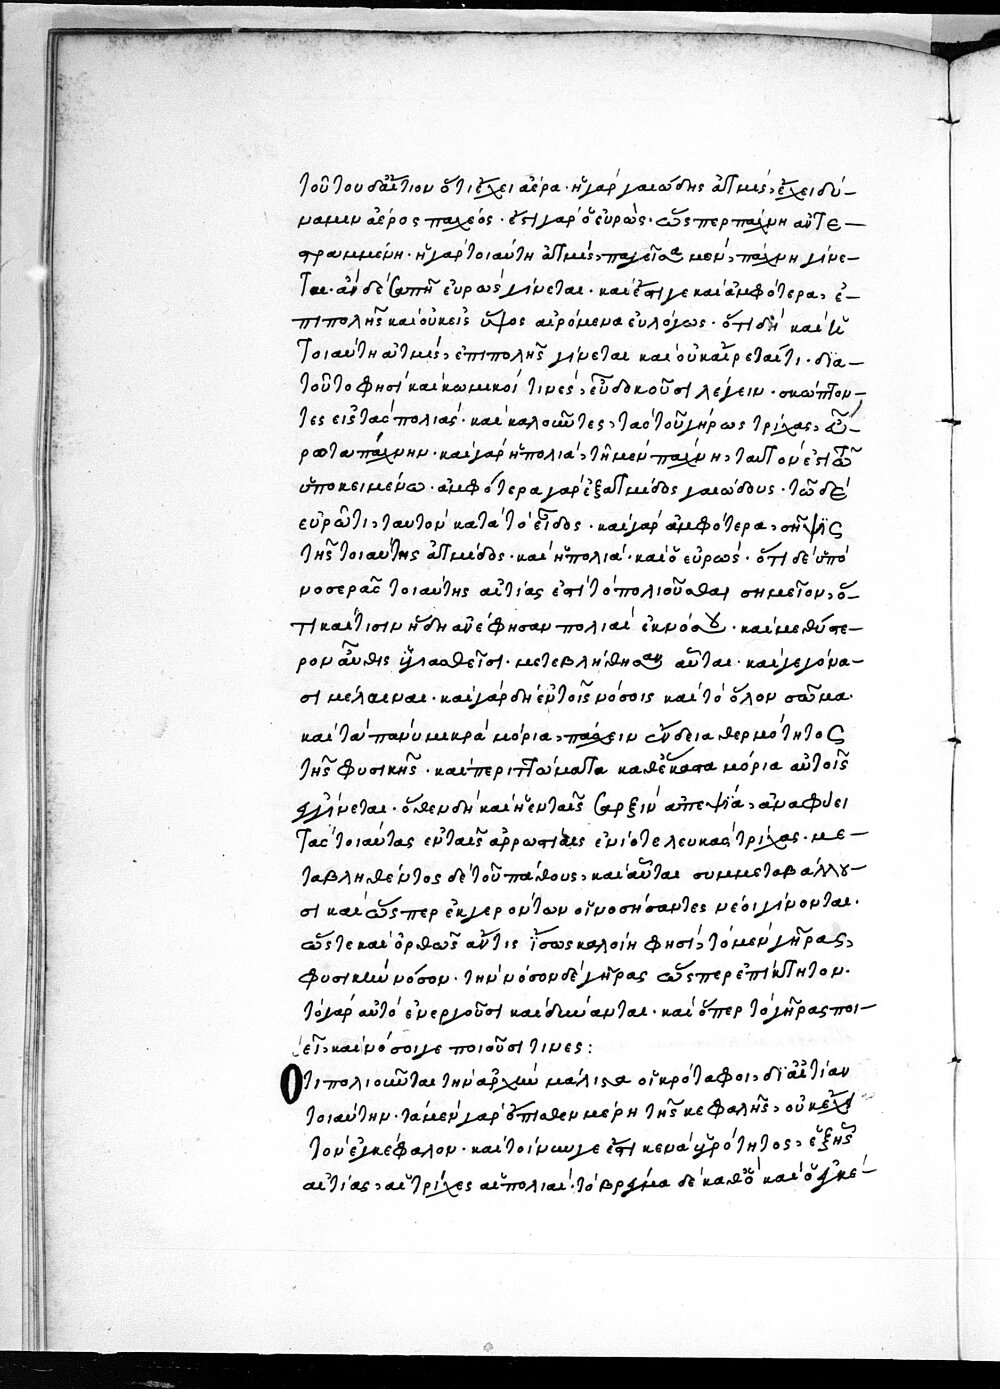 τούτου δ' αἴτιον ὅτι ἔχει ἀέρα· ἡ γὰρ γαιώδης ἀτμίς, ἔχει δύ-
ναμιν ἀέρος παχέος· ἔστι γὰρ ὁ εὐρώς· ὥσπερ πάχνη ἀντε-
στραμμένη· ἡ γὰρ τοιαύτη ἀτμίς, παγεῖσα μέν, πάχνη γίνε-
ται· ἂν δὲ σαπῇ εὐρὼς γίνεται· καὶ ἔστι γε καὶ ἀμφότερα, ἐ-
πιπολῆς καὶ οὐκ εἰς ὕψος αἰρόμενα εὐλόγως· ὅτι δὴ καὶ ἡ
τοιαύτη ἀτμίς, ἐπιπολῆς γίνεται καὶ οὐκ αἴρεται ἔτι· δια-
τοῦτο φησὶ καὶ κωμικοί τινες, εὖ δοκοῦσι λέγειν· σκώπτον-
τες εἰς τὰς πολιάς· καὶ καλοῦντες, τὰς τοῦ γήρως τρίχας, εὐ-
ρῶτα πάχνην· καὶ γὰρ ἡ πολιὰ, τῇ μὲν πάχνῃ, ταυτόν ἐστι τῶ
ὑποκειμένω· ἀμφότερα γὰρ ἐξ ἀτμίδος γαιώδους· τῶ δὲ
εὐρῶτι, ταυτὸν κατὰ τὸ εἶδος· καὶ γὰρ ἀμφότερα, σῆψις
τῆς τοιαύτης ἀτμίδος· καὶ ἡ πολιά· καὶ ὁ εὐρώς· ὅτι δὲ ὑπὸ
νοσερᾶς τοιαύτης αἰτίας ἐστὶ τὸ πολιοῦσθαι σημεῖον, ὅ-
τι καί τισιν ἤδη ἀνέφησαν πολιαὶ ἐκ νόσου· καὶ μεθύστε-
ρον αὖθις ὑγιασθεῖσι· μετεβλήθησαν αὗται· καὶ γεγόνα-
σι μέλαιναι· καὶ γὰρ δὴ ἐν τοῖς νόσοις καὶ τὸ ὅλον σῶμα·
καὶ τὰ πάνυ μικρὰ μόρια, πάσχειν ἐνδεία θερμότητος
τῆς φυσικῆς· καὶ περιττώματα καθ' ἕκαστα μόρια αὐτοῖς
γίνεται· ὅθεν δὴ καὶ ἡ ἐν ταῖς σαρξὶν ἀπεψία, ἀναφύει
τὰς τοιαύτας ἐν ταῖς ἀρρωστίαις ἐνίοτε λευκὰς τρίχας· με-
ταβληθέντος δὲ τοῦ πάθους, καὶ αὗται συμμεταβάλλου-
σι καὶ ὥσπερ ἐκ γερόντων οἱ νοσήσαντες νέοι γίνονται·
ὥστε καὶ ὀρθῶς ἄν τις ἴσως καλοίη φησί, τὸ μὲν γῆρας,
φυσικὴν νόσον· τὴν νόσον δὲ γῆρας ὥσπερ ἐπίκτητον·
τὸ γὰρ αὐτὸ ἐνεργοῦσι καὶ δύνανται· καὶ ὅπερ τὸ γῆρας ποι-
εῖ, καὶ νόσοι γε ποιοῦσί τινες:
Ὅτι πολιοῦνται τὴν ἀρχὴν μάλιστα οἱ κρόταφοι, δι' αἰτίαν
τοιαύτην· τὰ μὲν γὰρ ὄπισθεν μέρη τῆς κεφαλῆς, οὐκ ἔχει
τὸν ἐγκέφαλον· καὶ τοίνυν γε ἔστι κενὰ ὑγρότητος, ἐξ ἧς
αἰτίας, αἱ τρίχες αἱ πολιαί· τὸ βρέγμα δὲ καθὸ καὶ ὁ ἐγκέ-